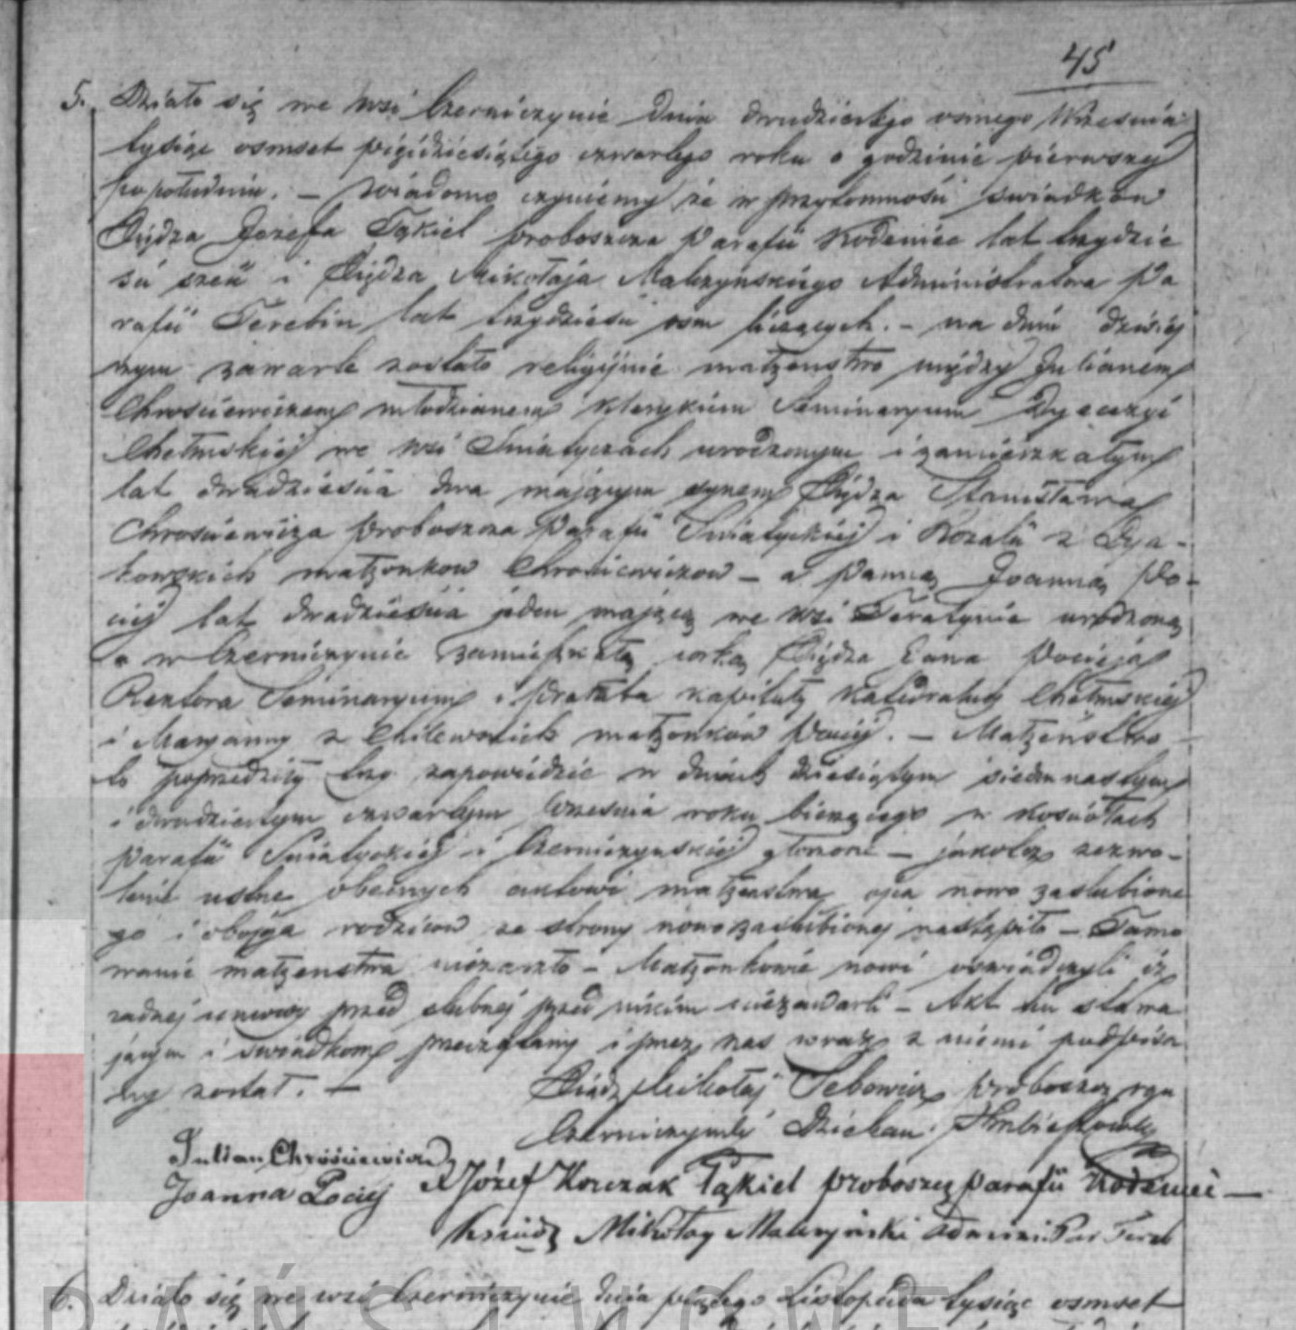 45
5. Działo się we wsi Czerniczynie dnia dwudziestego osmego Wrzesnia
tysiąc osmset pięćdziesiątego czwartego roku o godzinie pierwszej
popołudniu. – Wiadomo czyniemy że w przytomności swiadków
Xiędza Jozefa Tąkiel proboszcza Parafii Kodeniec lat trzydzie
sci sześć i Xiędza Mikołaja Malczyńskiego Administratora Pa
rafii Terebin lat trzydzieści osm liczących. – na dniu dzisiej
szym zawarte zostało religijnie małżenstwo między Julianem
Chrosciewiczem młodzianem Klerykiem Seminaryum Dyecezyi
Chełmskiej we wsi Sniatyczach urodzonym i zamieszkałym
lat dwadzieścia dwa mającym synem Xiędza Stanisława
Chrosciewicza Proboszcza Parafii Sniatyckiej i Rozalii z Dya-
kowskich małżonkow Chrosciewiczow – a Panną Joanną Po-
ciej lat dwadzieścia jeden mającą we wsi Teratynie urodzoną
a w Czerniczynie zamieszkałą corką Xiędza Jana Pocieja
Rektora Seminaryum i Prałata kapituły Katedralnej Chełmskiej
i Maryanny z Chilewskich małżonków Pociej. – Małżeństwo
to poprzedziły trzy zapowiedzie w dniach dziesiątym siedmnastym
i dwudziestym czwartym Wrzesnia roku bieżącego w kosciołach
Parafii Sniatyckiej i Czerniczynskiej głoszone – jakotez zezwo-
lenie ustne obecnych aktowi małżenstwa ojca nowo zaslubione
go i obojga rodzicow ze strony nowozaslubionej nastąpiło – Tamo
wanie małżenstwa niezaszło – Małżonkowie nowi oswiadczyli iż
zadnej umowy przed slubnej przed nikim niezawarli – Akt ten stawa
jącym i swiadkom przeczytany i przez nas wraz z niemi podpisa
ny został. –
Xiądz Mikołaj Tebowicz proboszcz
Czerniczynski Dziekan Hrubieszowski
Julian Chróściewicz
Joanna Pociej
X Józef Korczak Tąkiel proboszcz parafii Kodeniec –
Ksiądz Mikołay Malczyński Administ. Par Tereb
6. Działo się we wsi Czerniczynie dnia piątego Listopada tysiąc osmset
PAŃSTWOWE